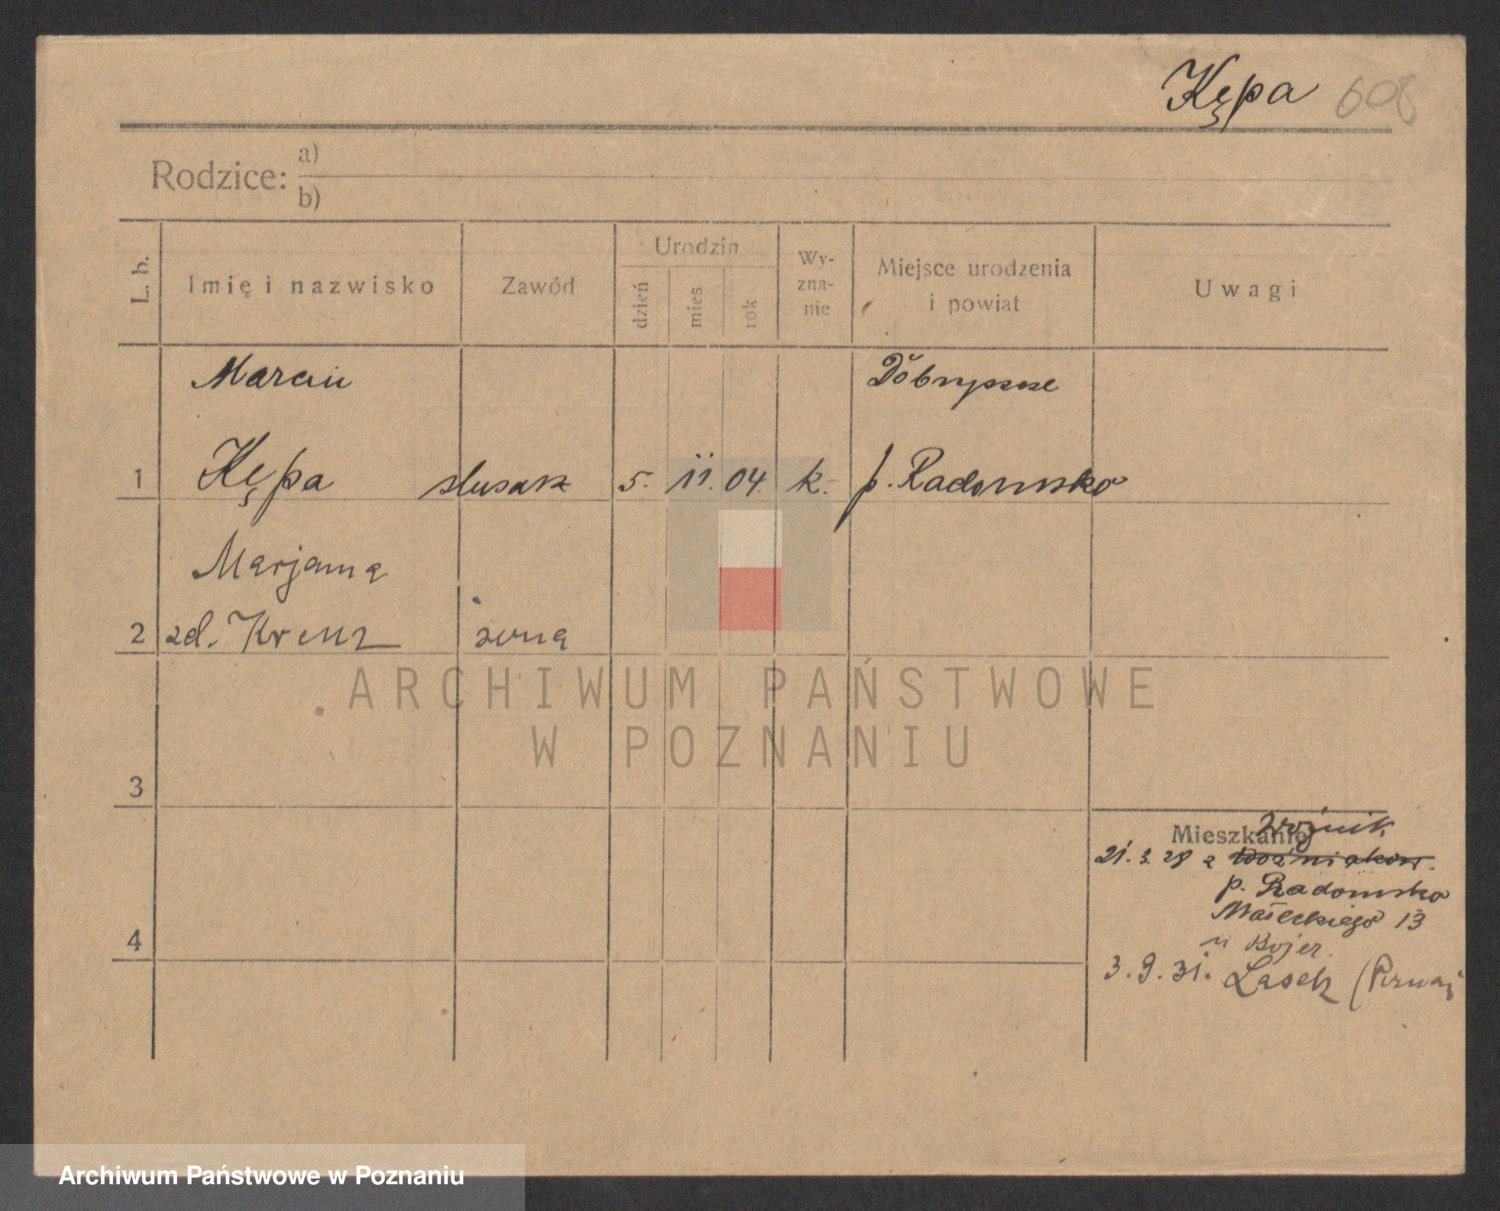 Kępa 608
Rodzice: a)
b)
L. b.
Imię i nazwisko
Zawód
Urodzin
dzień
mies
rok
Wy-
zna-
nie
Miejsce urodzenia
i powiat
Uwagi
Marcin
1 Kępa ślusarz 5. 11. 04. k. p. Radomsko
Marjanna
2 zd. Krenz żona
ARCHIWUM PAŃSTWOWE
W POZNANIU
3
Mieszkanie
21. 3. 28 z
p. Radomsko
Małeckiego 13
u Bojer.
4
3. 9. 31. Lasek
Archiwum Państwowe w Poznaniu